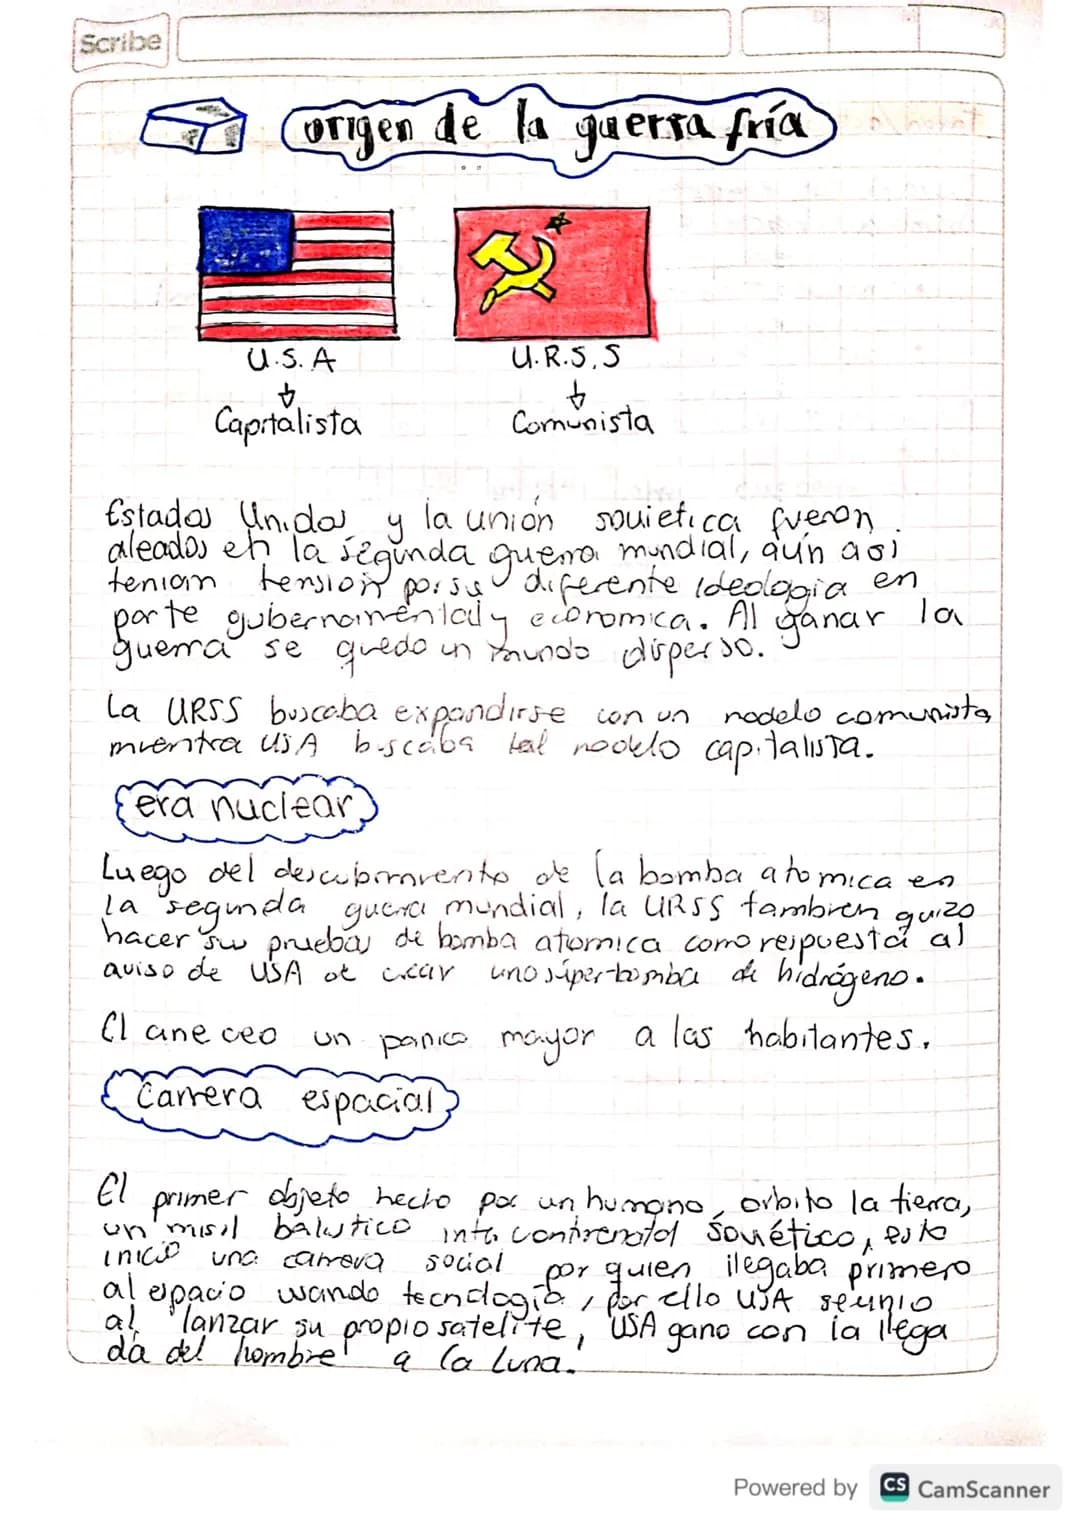 Scribe
origen de la guerra fría
U.S.A
U.R.S.S
Capitalista
Comunista
Estados Unidos y la unión souietica fueron
aleados en la segunda guerra mundial, aún asi
teniam tension por su diferente ideologia en
parte gubernamental y economica. Al ganar la
guerra se quedo un mundo disperso.
La URSS buscaba expandirse con un modelo comunista,
mientra USA buscaba tal modelo capitalista.
era nuclear
Luego del descubrimiento de la bomba atomica en
la segunda guerra mundial, la URSS tambien quizo
hacer su pruebas de bomba atomica como respuesta al
aviso de USA de crear una súper-bomba de hidrógeno.
un panico mayor a las habitantes.
Carrera espacial
El primer objeto hecho por un humano, orbito la tierra,
un misil balistico intercontinental Soviético, esto
inicio una carrera social por quien llegaba primero
al espacio usando tecnologia, por ello USA se unio
al lanzar su propio satelite, USA gano con la llega
da del hombre a la luna.
Powered by CS CamScanner